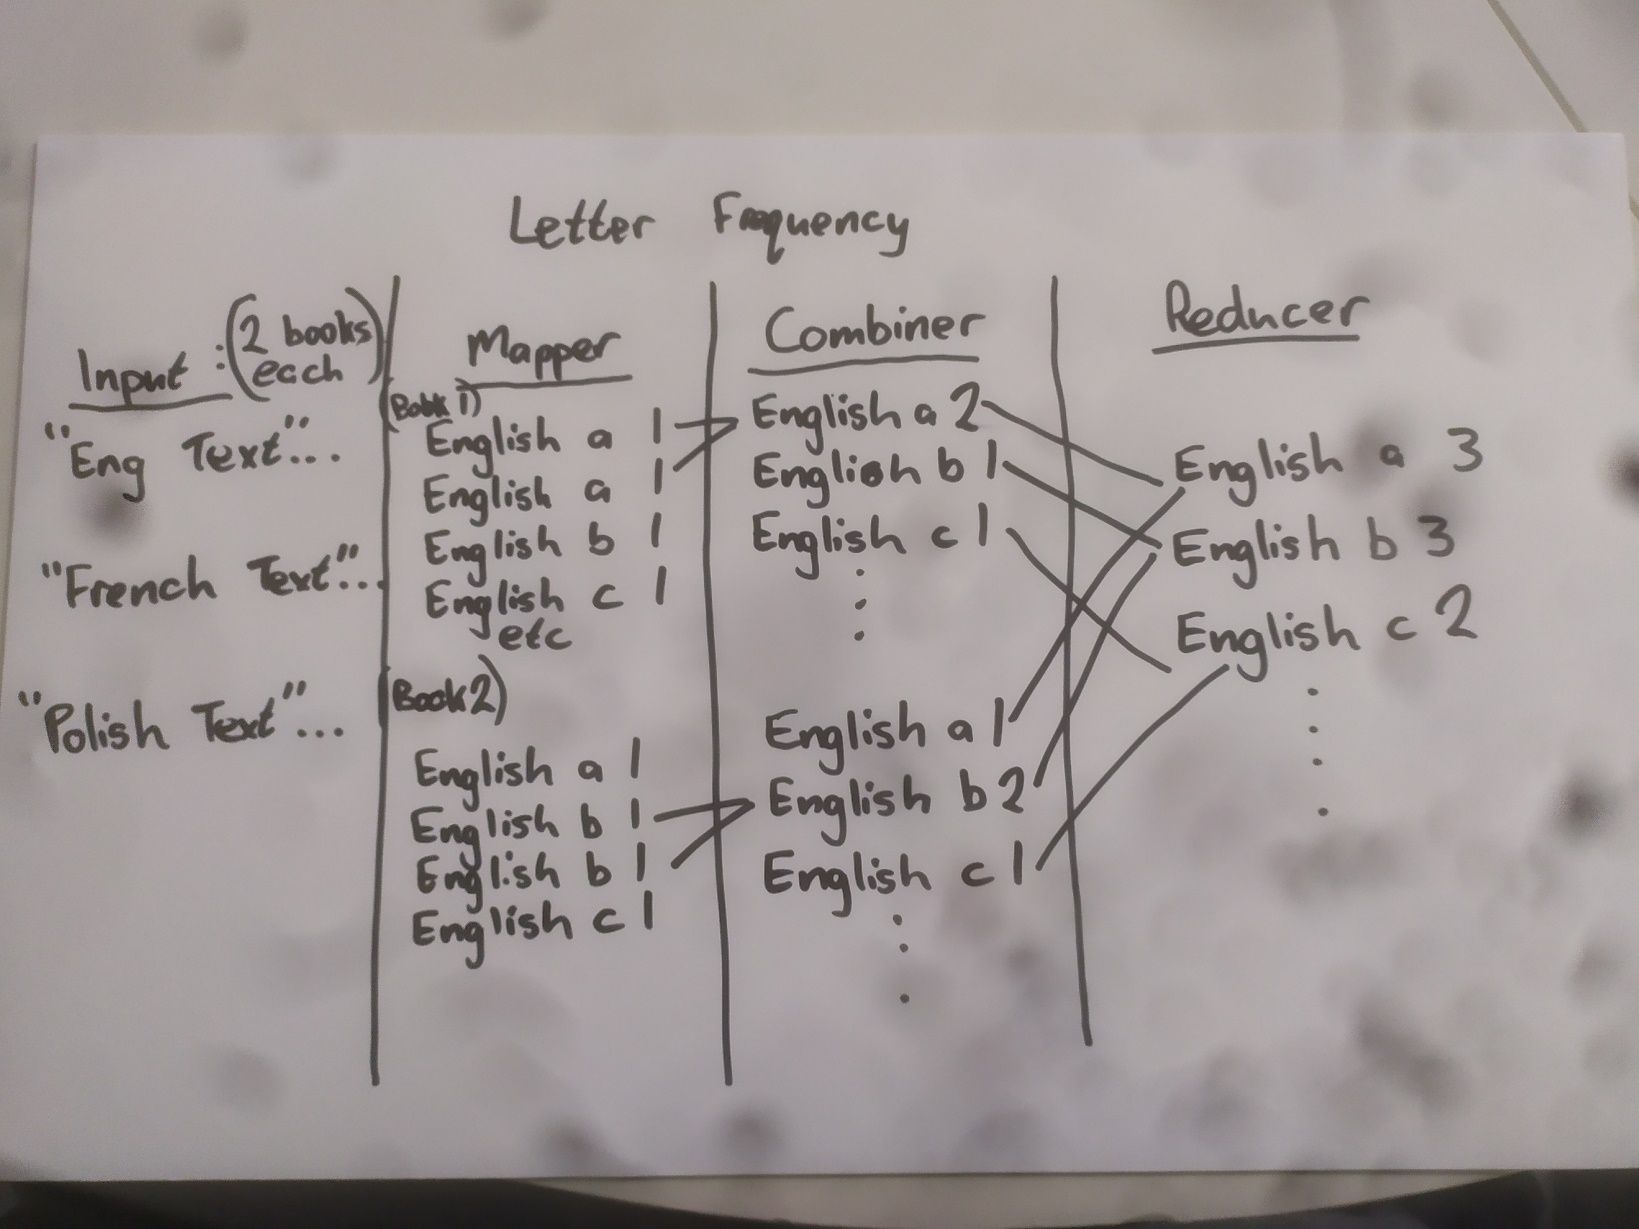 Letter Frequency
Input : (2 books
each)
"Eng Text"...
"French Text"...
"Polish Text"...
Mapper
(Book 1)
English a 1
English a 1
English b 1
English c 1
etc
(Book 2)
English a 1
English b 1
English b 1
English c 1
Combiner
English a 2
English b 1
English c 1
English a 1
English b 2
English c 1
Reducer
English a 3
English b 3
English c 2